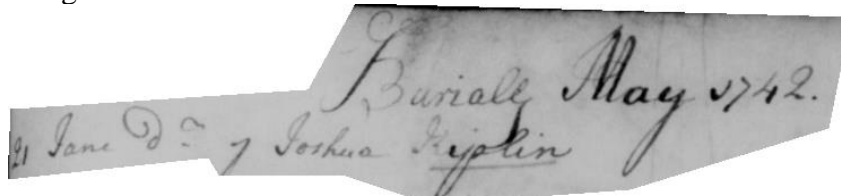 Burials May 1742.
21 Jane Dr. of Joshua Kiplin